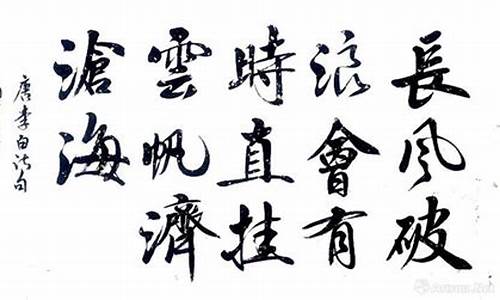 長风破
浪會有
時直挂
雲帆濟
滄海
唐李白诗句